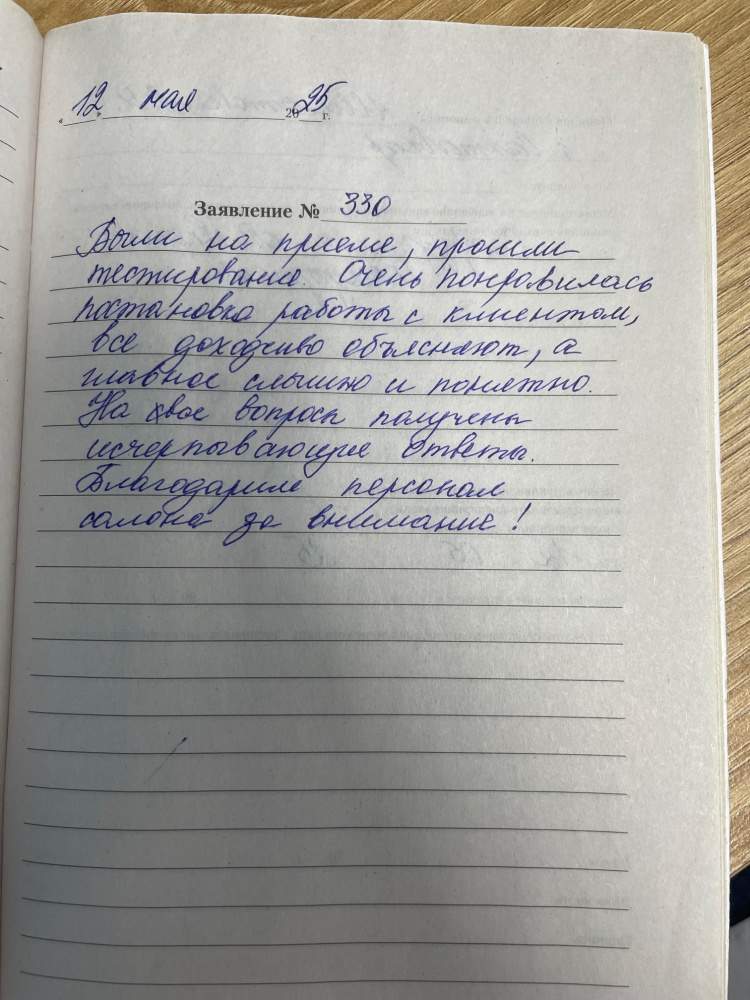 «12» мая 2025 г.
Заявление № 330
Были на приеме, прошли
тестирование. Очень понравилась
постановка работы с клиентом,
все доходчиво объясняют, а
главное слышно и понятно.
На все вопросы получены
исчерпывающие ответы.
Благодарим персонал
салона за внимание!